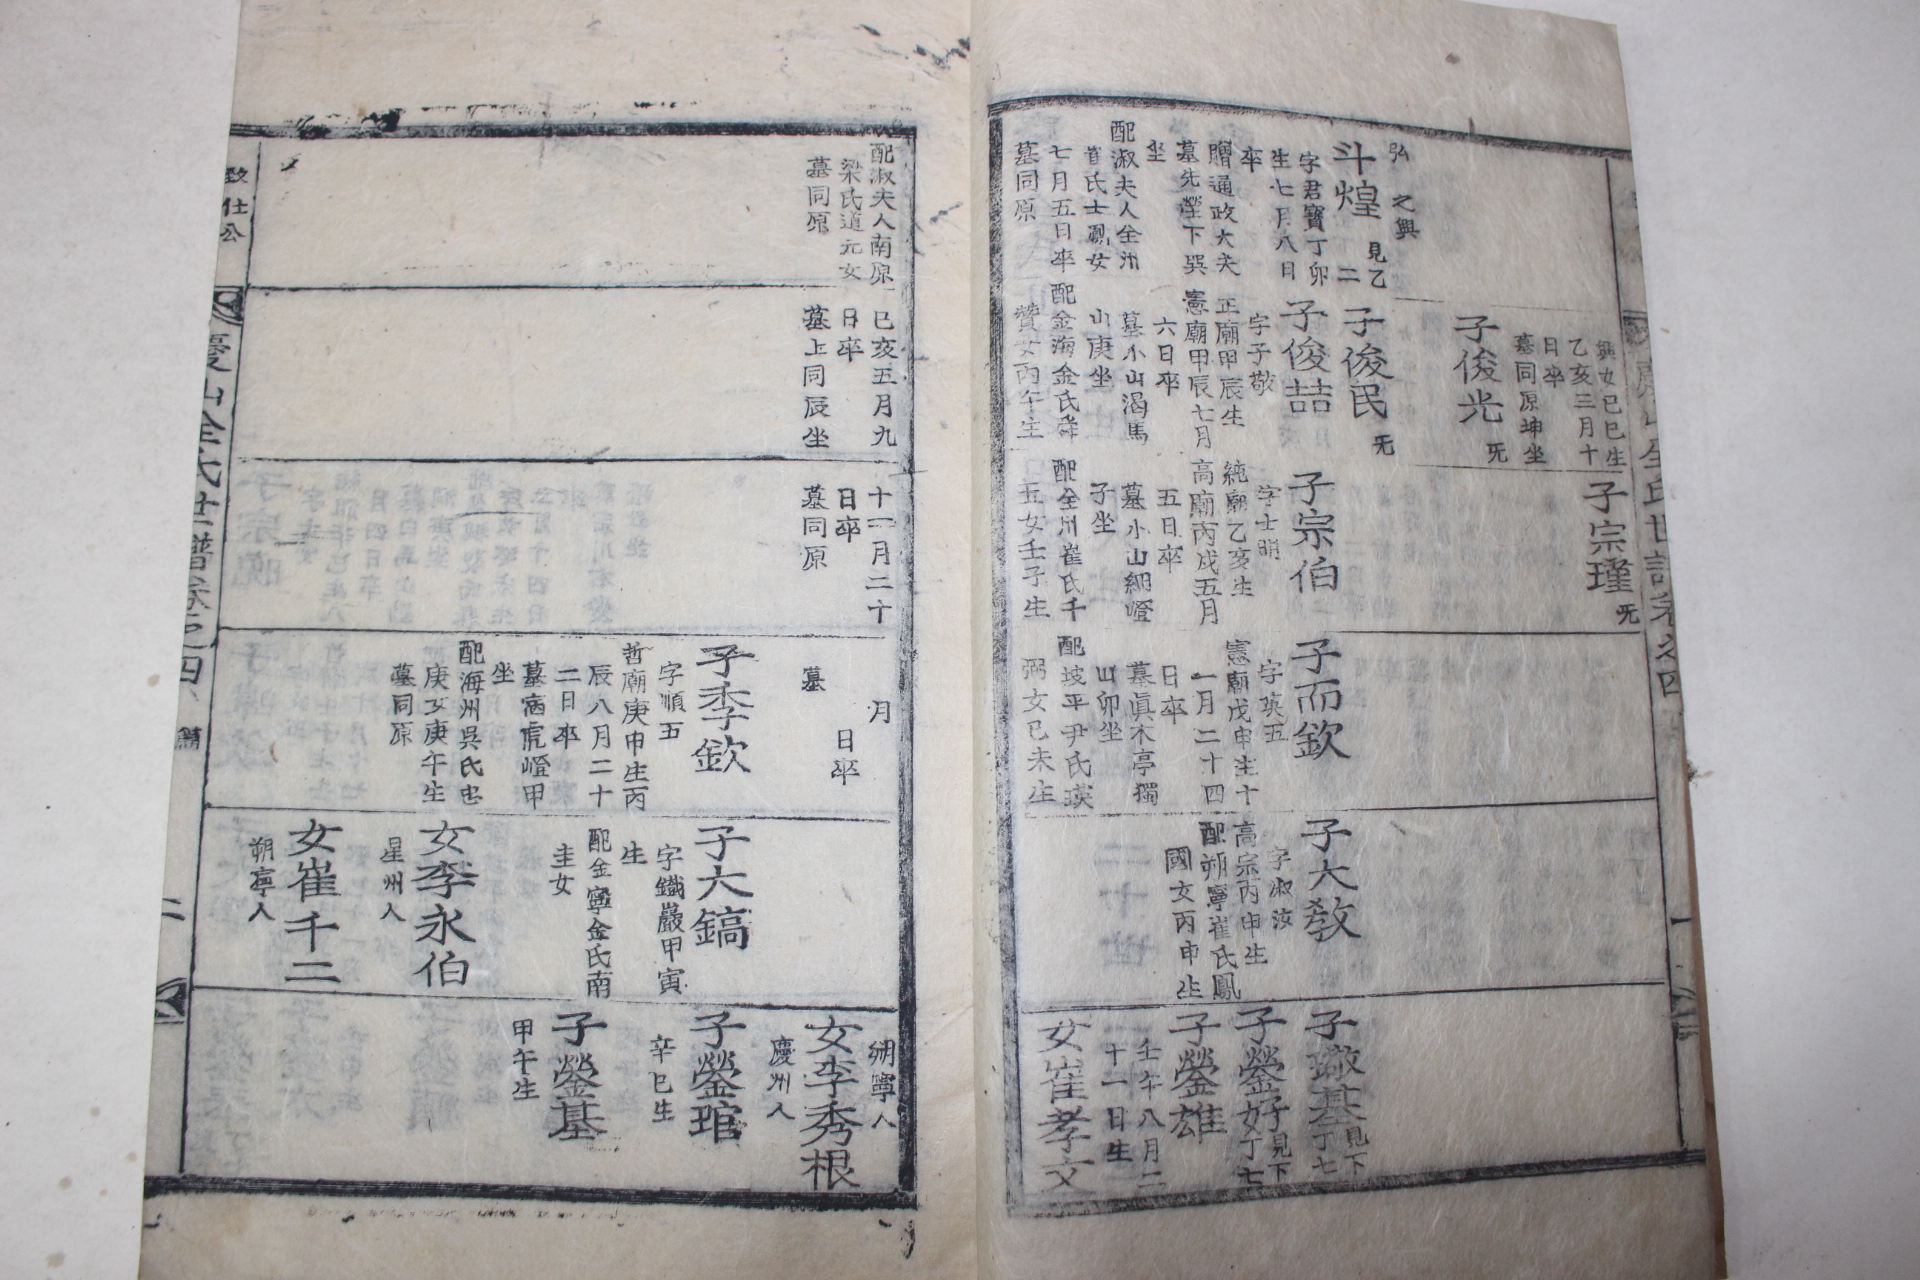 慶山全氏世譜卷之四
一
之興
斗煌
見乙二
字君寶丁卯
生七月八日
卒
贈通政大夫
墓先塋下巽
坐
配淑夫人全州
崔氏士鳳女
七月五日卒
墓同原
興女己巳生
乙亥三月十
日卒
墓同原坤坐
子俊光
旡
子俊民
旡
子俊喆
字子敬
正廟甲辰生
憲廟甲辰七月
六日卒
墓小山渴馬
山庚坐
配金海金氏舜
贊女丙午生
子宗瑾
旡
子宗伯
字士明
純廟乙亥生
高廟丙戌五月
五日卒
墓小山細嶝
子坐
配全州崔氏千
五女壬子生
子而欽
字英五
憲廟戊申生十
一月二十四
日卒
墓眞木亭獨
山卯坐
配坡平尹氏瑛
弼女己未生
子大敎
字淑汝
高宗丙申生
配朔寧崔氏鳳
國女丙申生
子璥基
見下丁七
子鎣好
見下女丁七
子鎣雄
壬午八月二
十一日生
女崔孝文
配淑夫人南原
梁氏道元女
墓同原
己亥五月九
日卒
墓上同辰坐
十一月二十
日卒
墓同原
月
日卒
墓
子季欽
字順五
哲廟庚申生丙
辰八月二十
二日卒
墓病虎嶝甲
坐
配海州吳氏忠
庚女庚午生
墓同原
子大鎬
字鐵巖甲寅
生
配金寧金氏南
圭女
女李永伯
星州人
女崔千二
朔寧人
朔寧人
女李秀根
慶州人
子鎣琯
辛巳生
子鎣基
甲午生
致仕公
慶山全氏世譜卷之四
二